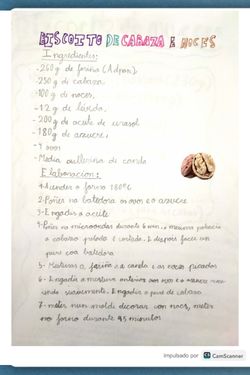 BISCOITO DE CABAZA E NOCES
Ingredientes:
-260g de fariña (Adpan)
-250g de cabaza
-100g de noces
-12g de lévedo
-200g de aceite de xirasol
-180g de azucre
-4 ovos
-Media culleriña de canela
Elaboracion:
1-Acender o forno 180ºC
2-Poñer na batedora os ovos e o azucre
3-Engadir o aceite
4-Poñer no microondas durante 6 min. a maxima potencia
a cabaza pelada e cortada. E despois facer un
pure coa batedora
5-Mesturar a fariña a canela e as noces picadas
6-Engadir a mestura anterior aos ovos e o azucre
suavemente. Engadir o pure de cabaza
7-meter nun molde decorar con noces, meter
no forno durante 45 minutos
Impulsado por CS CamScanner